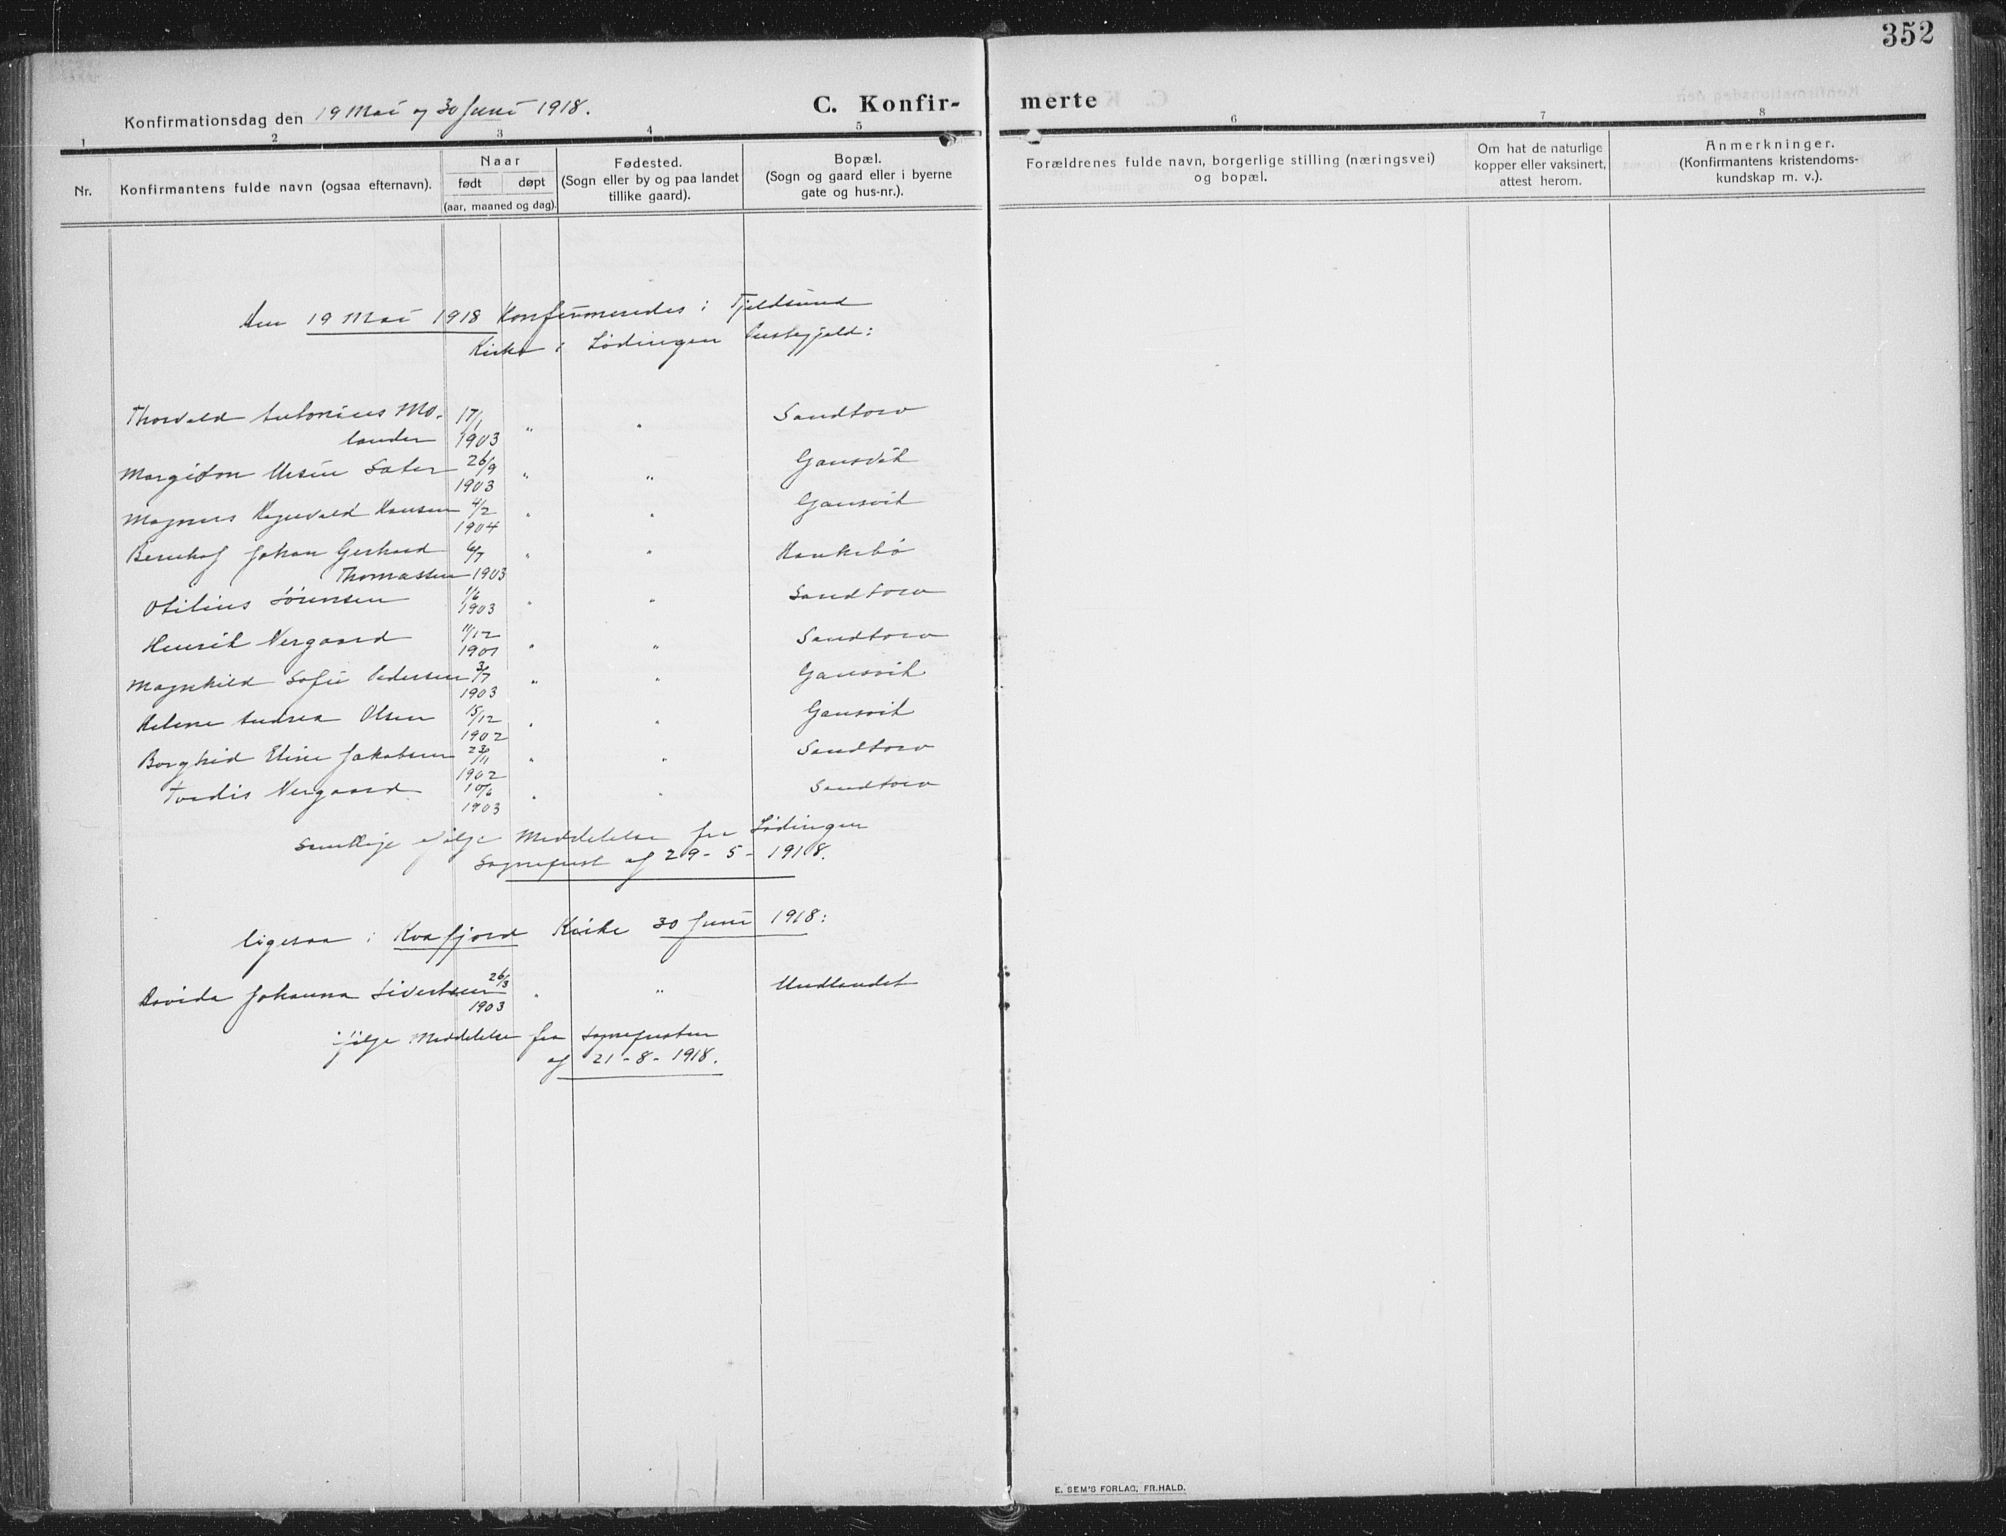 352
Konfirmationsdag den 19 Mai og 30 Juni 1918.
C. Konfir-
merte
1 2 3 4 5 6 7 8
Nr.
Konfirmantens fulde navn (ogsaa efternavn).
Naar
født døpt
(aar, maaned og dag).
Fødested.
(Sogn eller by og paa landet
tillike gaard).
Bopæl.
(Sogn og gaard eller i byerne
gate og hus-nr.).
Forældrenes fulde navn, borgerlige stilling (næringsvei)
og bopæl.
Om hat de naturlige
kopper eller vaksinert,
attest herom.
Anmerkninger.
(Konfirmantens kristendoms-
kundskap m. v.).
Den 19 Mai 1918 Konfirmeredes i Tjeldsund
Kirke i Lødingen Prestegjeld:
Thorvald Antonius Mo- 17/1 Sandtorv
lander 1903 " "
Sater 26/9 Gansvik
1903 " "
Magnus Ragnvald Hansen 4/2 Gansvik
1904 " "
Johan Gerhard 6/7 " "
Thomassen 1903
Otilius Sørensen 1/6 Sandtorv
1903 " "
Henrik Nergaard 11/12 Sandtorv
" "
Magnhild Sofie Pedersen 3/7 " " Gansvik
1903
Helene Andrea Olsen 15/12 " " Gansvik
1902
Borghild Eline Jakobsen 23/11 " " Sandtorv
1902
Tordis Nergaard 10/6 " " Sandtorv
1903
Samtlige ifølge Meddelelse fra Lødingen
Sogneprest af 29-5-1918.
ligesaa i Kvæfjord Kirke 30 Juni 1918:
Davida Johanna Sivertsen 26/3 " " Undlandet
1903
ifølge Meddelelse fra Sognepresten
af 21-8-1918.
E. SEM'S FORLAG, FR.HALD.